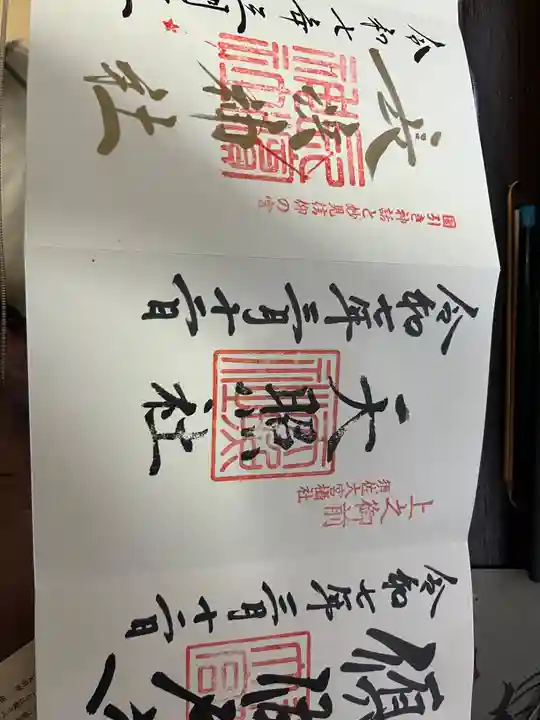 須佐大
令和七年三月十二日
上之御前
須佐大宮摂社
天照社
令和七年三月十二日
国引き神話と妙見信仰の宮
神社
令和七年三月